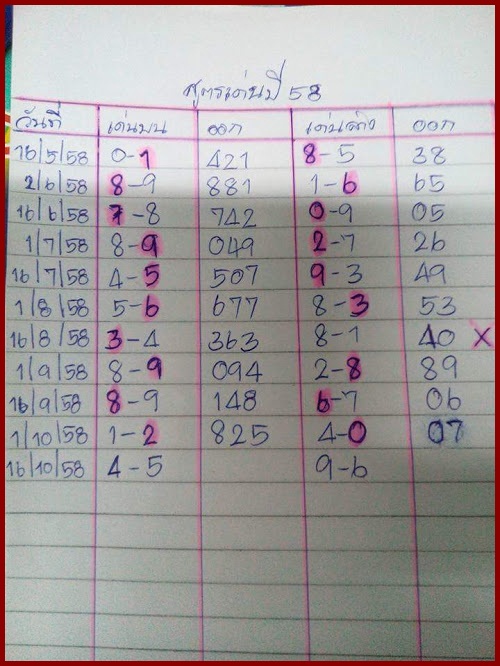 สูตรเด่นปี 58
วันที่ เด่นบน ออก เด่นล่าง ออก
16/5/58 0-1 421 8-5 38
2/6/58 8-9 881 1-6 65
16/6/58 7-8 742 0-9 05
1/7/58 8-9 049 2-7 26
16/7/58 4-5 507 9-3 49
1/8/58 5-6 677 8-3 53
16/8/58 3-4 363 8-1 40 X
1/9/58 8-9 094 2-8 89
16/9/58 8-9 148 6-7 06
1/10/58 1-2 825 4-0 07
16/10/58 4-5 9-6